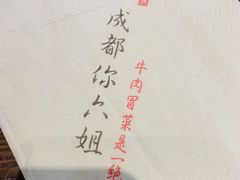 成都你六姐
牛肉冒菜是一绝